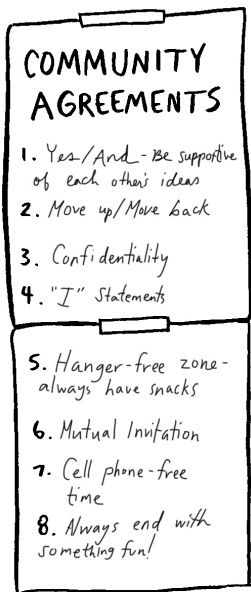 COMMUNITY
AGREEMENTS
1. Yes/And - Be supportive
of each other's ideas
2. Move up/Move back
3. Confidentiality
4. "I" Statements
5. Hanger-free zone -
always have snacks
6. Mutual Invitation
7. Cell phone-free
time
8. Always end with
something fun!